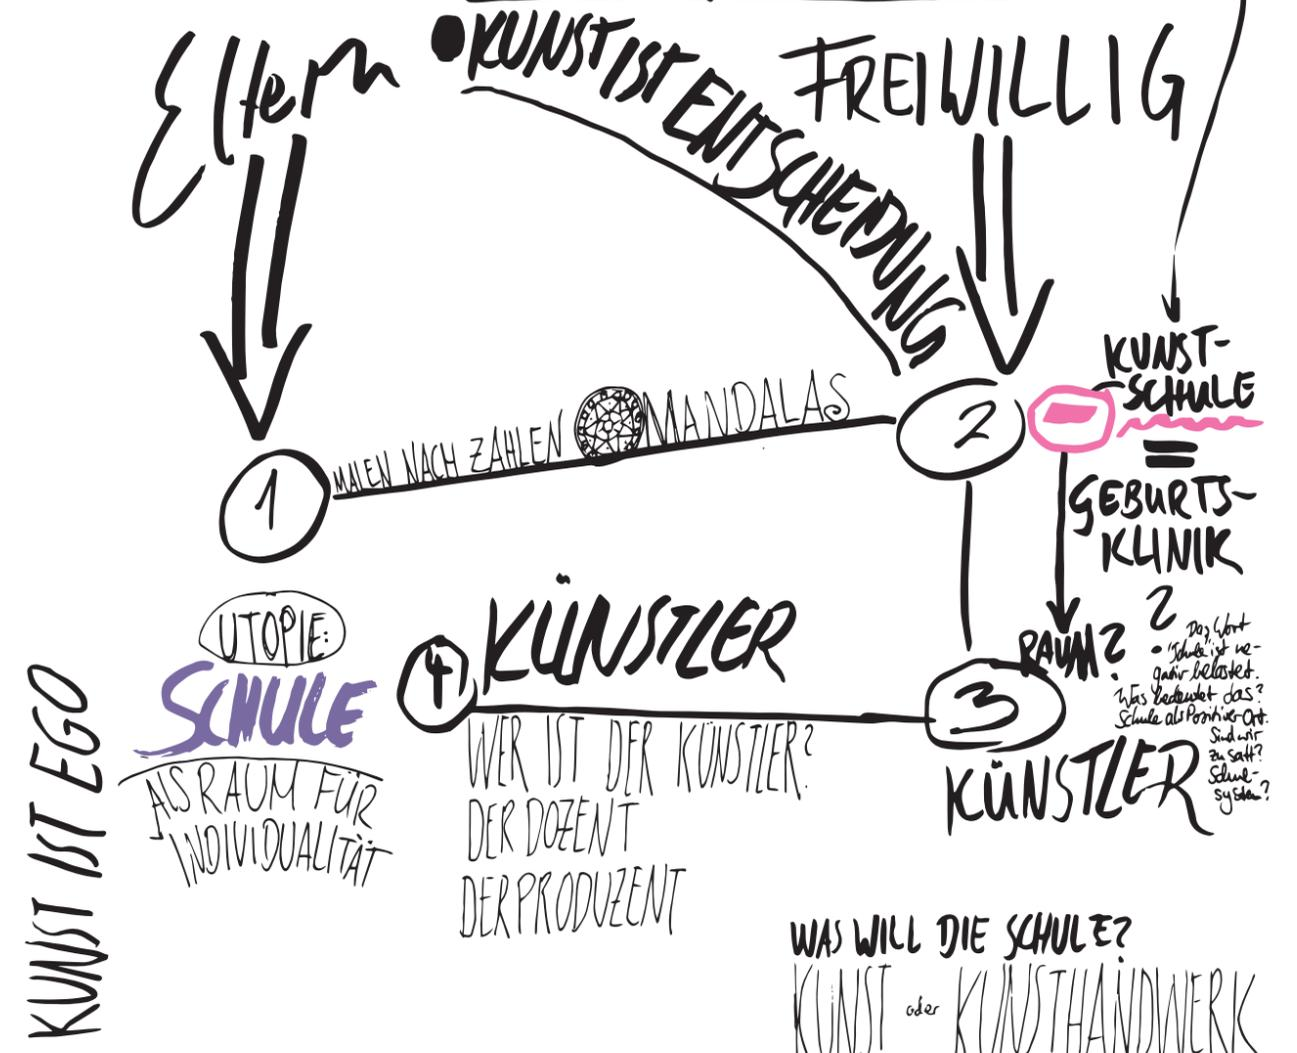 Eltern
• KUNST IST ENTSCHEIDUNG
FREIWILLIG
KUNST-
SCHULE
=
GEBURTS-
KLINIK
?
MALEN NACH ZAHLEN MANDALAS
1
2
RAUM?
3
KÜNSTLER
• Das Wort
"Schule" ist ne-
gativ belastet.
Was bedeutet das?
Schule als Positiver Ort.
Sind wir
zu satt?
Schul-
system?
UTOPIE:
SCHULE
ALS RAUM FÜR
INDIVIDUALITÄT
4
KÜNSTLER
WER IST DER KÜNSTLER?
DER DOZENT
DER PRODUZENT
KUNST IST EGO
WAS WILL DIE SCHULE?
KUNST oder KUNSTHANDWERK